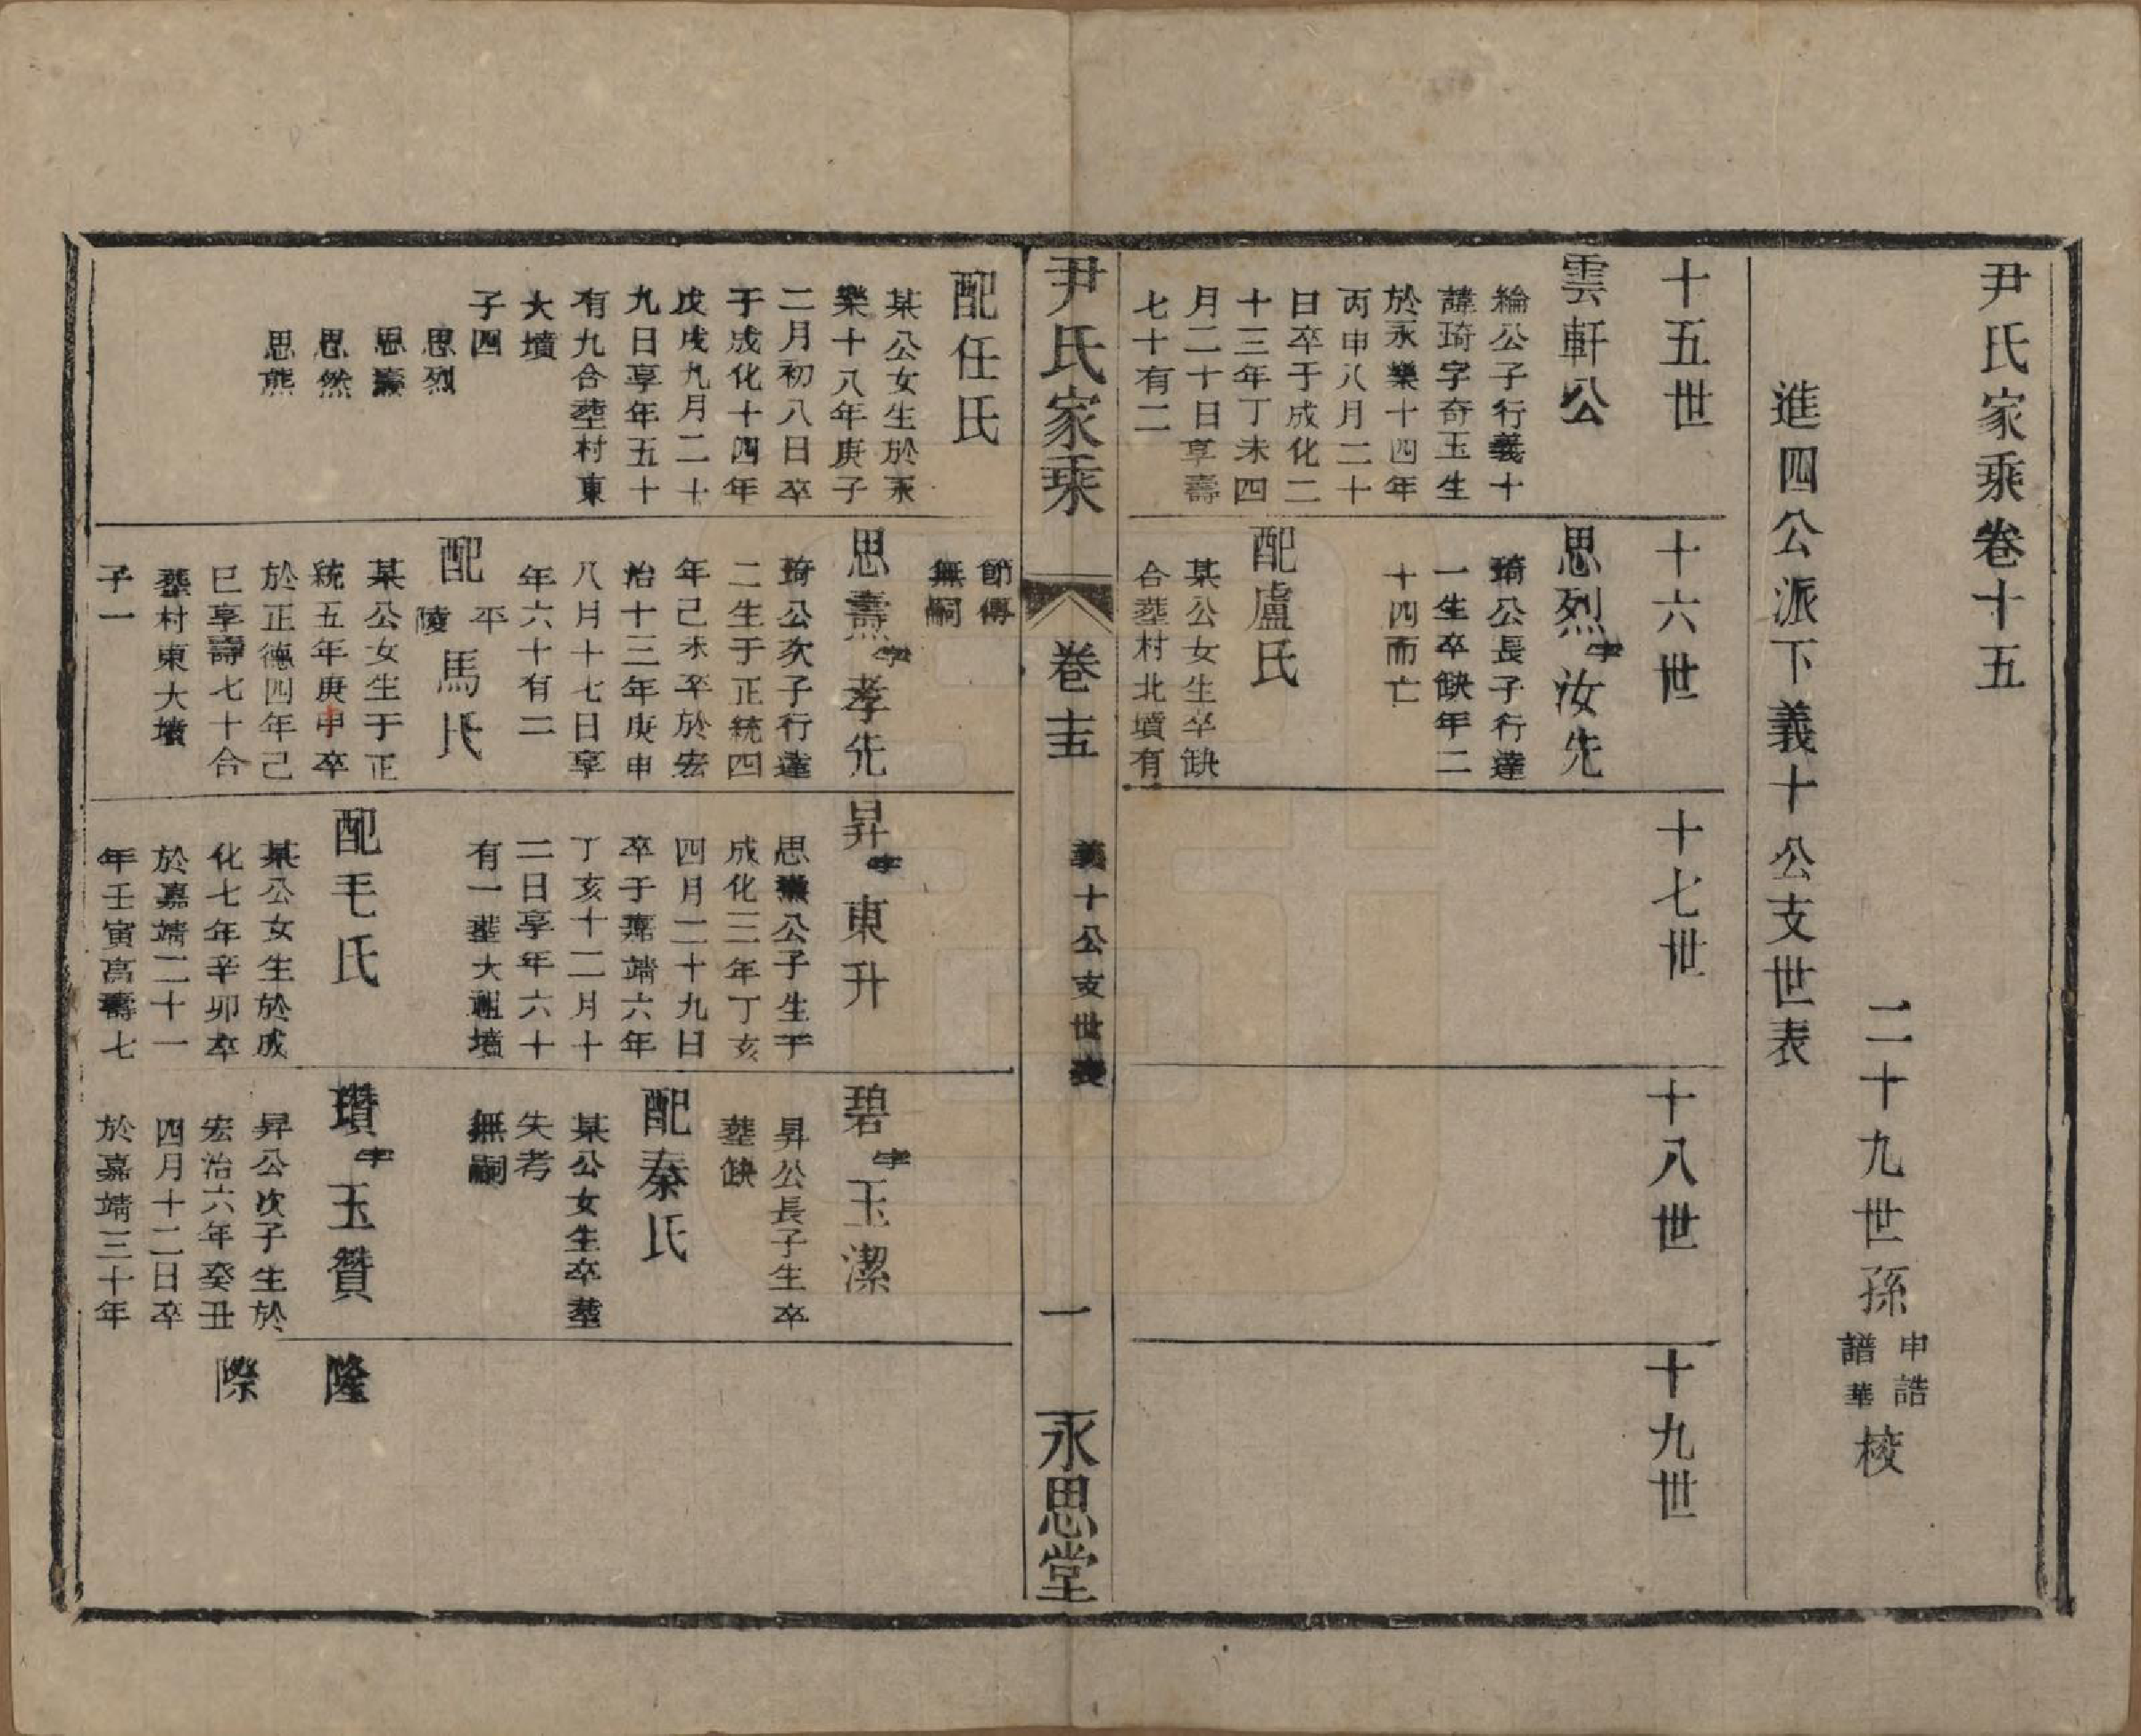 尹氏家乘卷十五
二十九世孫
申誥
譜華
校
進四公派下義十公支世表
十五世
雲軒公
綸公子行義十
諱琦字奇玉生
於永樂十四年
丙申八月二十
日卒于成化二
十三年丁未四
月二十日享壽
七十有二
十六世
思烈字汝先
琦公長子行達
一生卒缺年二
十四而亡
配盧氏
某公女生卒缺
合塟村北墳有
十七世
十八世
十九世
尹氏家乘
卷十五
義十公支世表
一
永思堂
配任氏
某公女生於永
樂十八年庚子
二月初八日卒
于成化十四年
戊戌九月二十
九日享年五十
有九合塟村東
大墳
子四
思烈
思壽
思然
思熊
節傳
無嗣
思燾字孝先
琦公次子行達
二生于正統四
年己未卒於宏
治十三年庚申
八月十七日享
年六十有二
配平陵馬氏
某公女生于正
統五年庚申卒
於正德四年己
巳享壽七十合
塟村東大墳
子一
昇字東升
思燾公子生于
成化三年丁亥
四月二十九日
卒于嘉靖六年
丁亥十二月十
二日享年六十
有一塟大祖墳
配毛氏
某公女生於成
化七年辛卯卒
於嘉靖二十一
年壬寅高壽七
碧字玉潔
昇公長子生卒
塟缺
配秦氏
某公女生卒塟
失考
無嗣
瓚字玉贊
昇公次子生於
宏治六年癸丑
四月十二日卒
於嘉靖三十年
隆
際